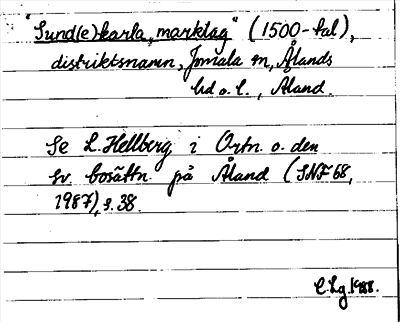 "Sund(e)karla marklag" (1500-tal),
distriktsnamn, Jomala sn, Ålands
hd o. l., Åland.
Se L. Hellberg i Ortn. o. den
sv. bosättn. på Åland (SNF 68,
1987), s. 38.
C. Lg. 1988.